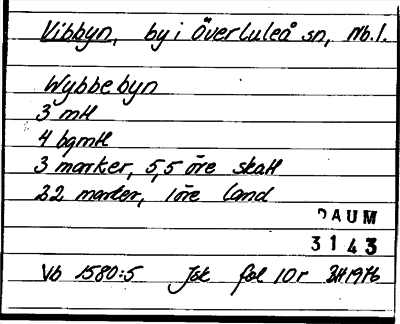 Vibbyn, by i Överluleå sn, Nb.l.
Wybbebyn
3 mtl
4 bgmtl
3 marker, 5,5 öre skatt
22 marker, 1 öre land
DAUM
3143
Vb 1580:5 Jak fol 10r BH 1976